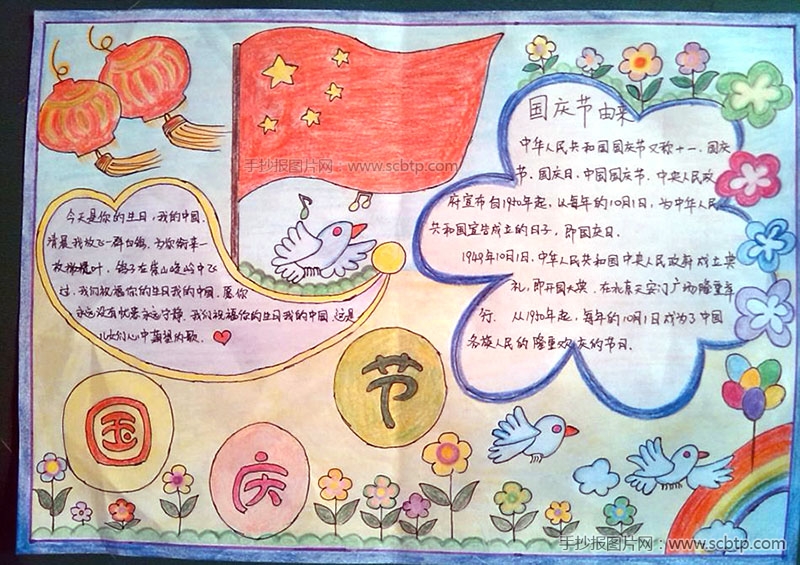 手抄报图片网 www.scbtp.com
国庆节由来
中华人民共和国国庆节又称十一、国庆
节、国庆日、中国国庆节。中央人民政
府宣布自1950年起，以每年的10月1日，为中华人民
共和国宣告成立的日子，即国庆日。
1949年10月1日，中华人民共和国中央人民政府成立典
礼，即开国大典，在北京天安门广场隆重举
行。从1950年起，每年的10月1日成为了中国
各族人民的隆重欢庆的节日。
今天是你的生日，我的中国，
清晨我放飞一群白鸽，为你衔来一
枚橄榄叶，鸽子在崇山峻岭中飞
过，我们祝福你的生日我的中国，愿你
永远没有忧患永远宁静。我们祝福你的生日我的中国，这是
儿女们心中期望的歌。
国
庆
节
手抄报图片网：www.scbtp.com